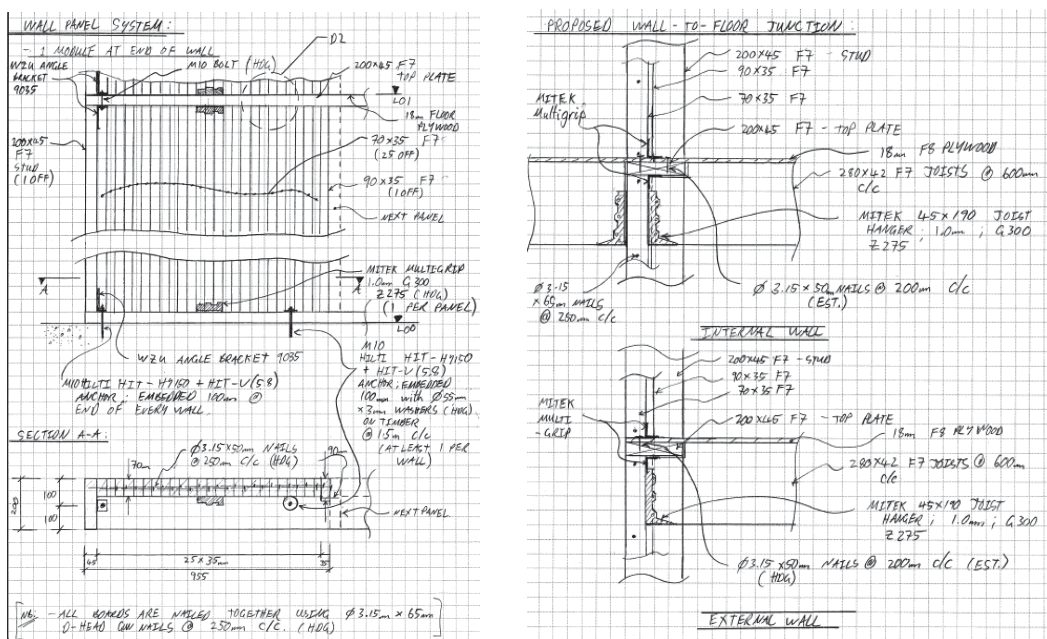 WALL PANEL SYSTEM:
- 1 MODULE AT END OF WALL
WZU ANGLE
BRACKET
9035
M10 BOLT (HDG)
D2
200x45 F7
TOP PLATE
L01
18mm FLOOR
PLYWOOD
70x35 F7
(25 OFF)
200x45
F7
STUD
(1 OFF)
90x35 F7
(1 OFF)
NEXT PANEL
A
A
MITEK MULTIGRIP
1.0mm G300
Z275 (HDG)
(1 PER PANEL)
L00
WZU ANGLE BRACKET 9035
M10 HILTI HIT-HY150 + HIT-V(5.8)
ANCHOR; EMBEDDED 100mm @
END OF EVERY WALL.
M10
HILTI HIT-HY150
+ HIT-V(5.8)
ANCHOR; EMBEDDED
100mm with Ø55mm
x3mm WASHERS (HDG)
ON TIMBER
@ 1.5m c/c
(AT LEAST 1 PER
WALL)
SECTION A-A:
Ø3.15x50mm NAILS
@ 250mm c/c (HDG)
70mm
90mm
200
100
100
NEXT PANEL
45
25x35mm
35
955
NB: - ALL BOARDS ARE NAILED TOGETHER USING Ø3.15mm x 65mm
D-HEAD GUN NAILS @ 250mm c/c. (HDG)
PROPOSED WALL-TO-FLOOR JUNCTION:
200x45 F7 - STUD
90x35 F7
70x35 F7
MITEK
Multigrip
200x45 F7 - TOP PLATE
18mm F8 PLYWOOD
280x42 F7 JOISTS @ 600mm
c/c
MITEK 45x190 JOIST
HANGER; 1.0mm; G300
Z275
Ø3.15
x65mm NAILS
@ 250mm c/c
Ø3.15x50mm NAILS @ 200mm c/c
(EST.)
INTERNAL WALL
200x45 F7 - STUD
90x35 F7
70x35 F7
MITEK
MULTI
-GRIP
200x45 F7 - TOP PLATE
18mm F8 PLYWOOD
280x42 F7 JOISTS @ 600mm
c/c
MITEK 45x190 JOIST
HANGER; 1.0mm; G300
Z275
Ø3.15x50mm NAILS @ 200mm c/c (EST.)
(HDG)
EXTERNAL WALL